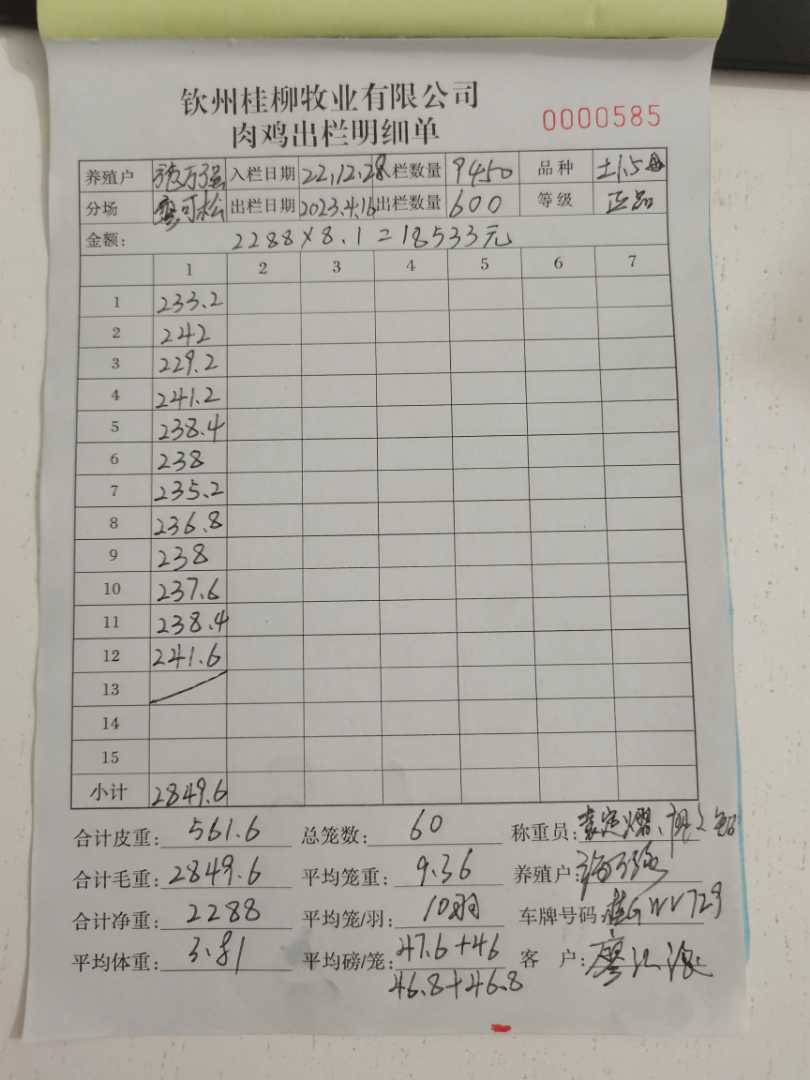 钦州桂柳牧业有限公司
肉鸡出栏明细单 0000585
养殖户 入栏日期 22.12.28 栏数量 9450 品种 土1.5母
分场 出栏日期 2023.4.16 出栏数量 600 等级 正品
金额: 2288×8.1=18533元
1 2 3 4 5 6 7
1 233.2
2 242
3 229.2
4 241.2
5 238.4
6 238
7 235.2
8 236.8
9 238
10 237.6
11 238.4
12 241.6
13
14
15
小计 2849.6
合计皮重: 561.6 总笼数: 60 称重员:
合计毛重: 2849.6 平均笼重: 9.36 养殖户:
合计净重: 2288 平均笼/羽: 10羽 车牌号码:
平均体重: 3.81 平均磅/笼: 47.6+46 客 户:
46.8+46.8